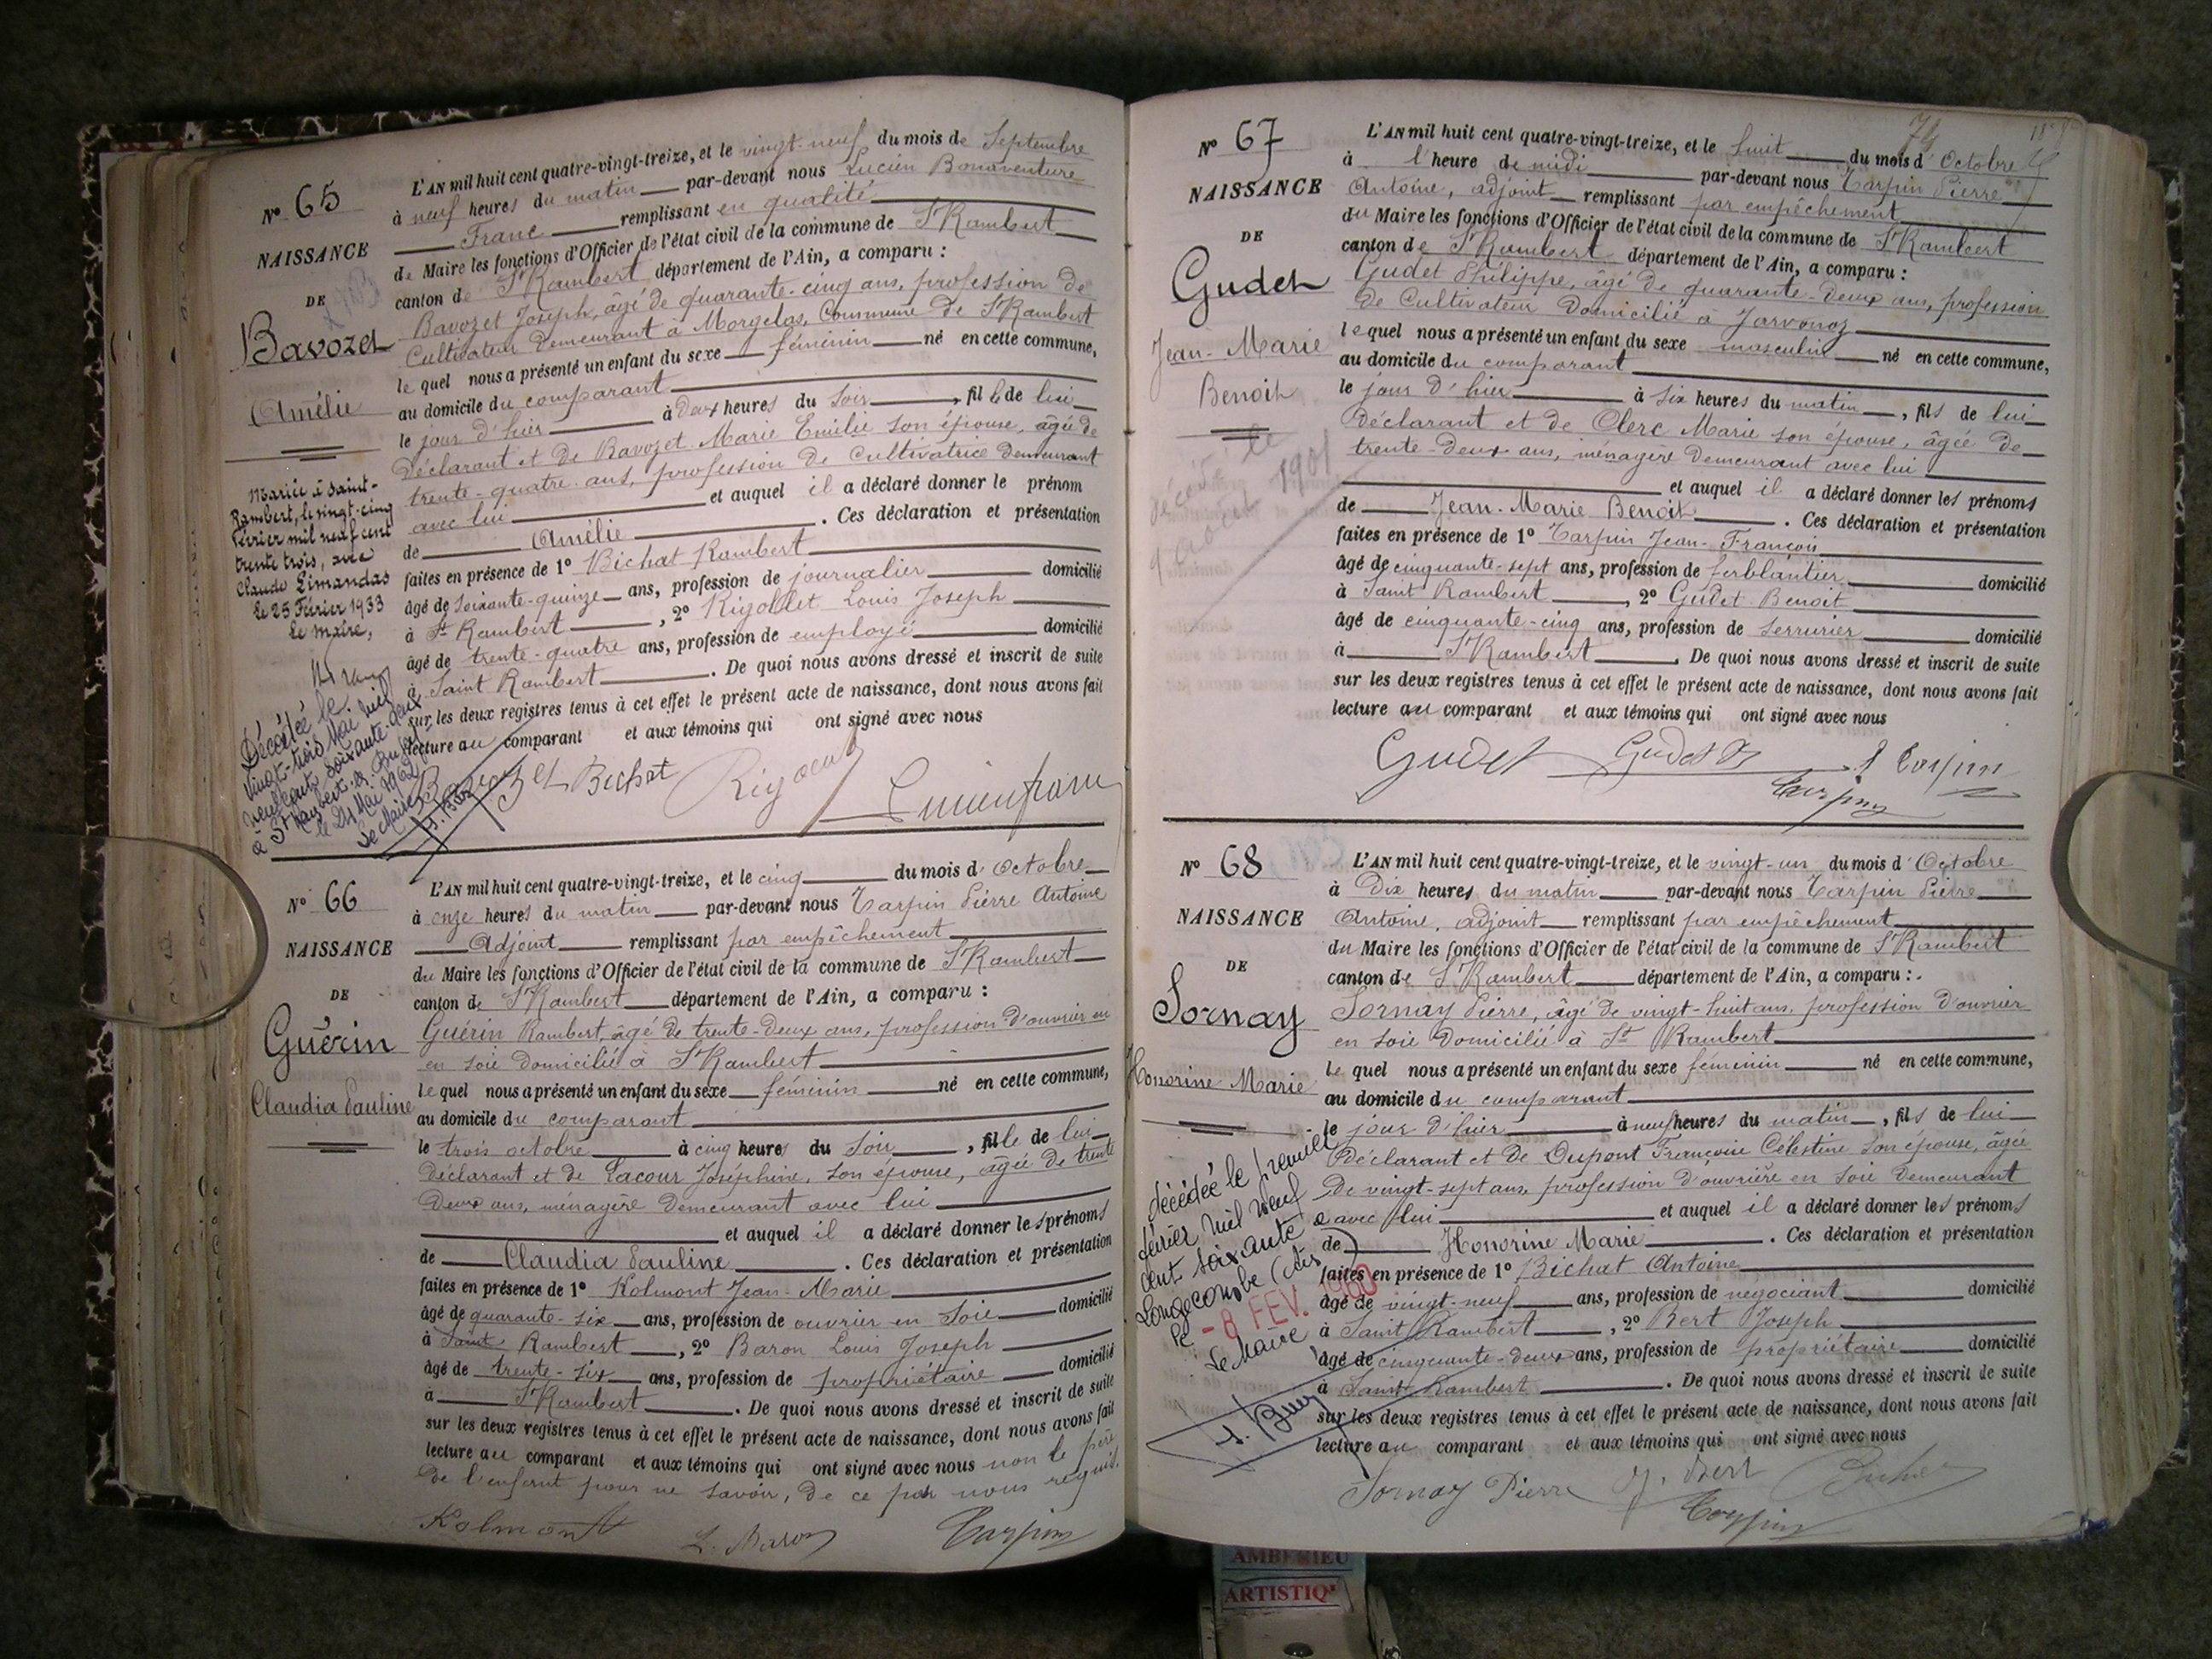 N° 65
NAISSANCE
DE
Bavozet
Amélie
Mariée à Saint-
Rambert, le vingt-cinq
février mil neuf cent
trente trois, avec
Claude Limandas
le 25 Février 1933
Le Maire,
Décédée le
vingt-trois Mai mil
neuf cent soixante-deux
à St Rambert-en-Bugey
le 24 Mai 1962
Le Maire
L'AN mil huit cent quatre-vingt-treize, et le vingt-neuf du mois de Septembre
à neuf heures du matin par-devant nous Lucien Bonaventure
Franc remplissant en qualité
de Maire les fonctions d'Officier de l'état civil de la commune de St Rambert
canton de St Rambert département de l'Ain, a comparu :
Bavozet Joseph, âgé de quarante-cinq ans, profession de
Cultivateur demeurant à Morgelas, Commune de St Rambert
lequel nous a présenté un enfant du sexe féminin né en cette commune,
au domicile du comparant
le jour d'hier à deux heures du soir, fille de lui
déclarant et de Bavozet Marie Emilie son épouse, âgée de
trente-quatre ans, profession de Cultivatrice demeurant
avec lui et auquel il a déclaré donner le prénom
de Amélie. Ces déclaration et présentation
faites en présence de 1° Bichat Rambert
âgé de soixante-quinze ans, profession de journalier domicilié
à St Rambert, 2° Rigollet Louis Joseph
âgé de trente-quatre ans, profession de employé domicilié
à Saint Rambert. De quoi nous avons dressé et inscrit de suite
sur les deux registres tenus à cet effet le présent acte de naissance, dont nous avons fait
lecture au comparant et aux témoins qui ont signé avec nous
Bavozet Bichat
N° 66
NAISSANCE
DE
Guérin
Claudia Pauline
L'AN mil huit cent quatre-vingt-treize, et le cinq du mois d'Octobre
à onze heures du matin par-devant nous Tarpin Pierre Antoine
Adjoint remplissant par empêchement
du Maire les fonctions d'Officier de l'état civil de la commune de St Rambert
canton de St Rambert département de l'Ain, a comparu :
Guérin Rambert, âgé de trente-deux ans, profession d'ouvrier en
en soie domicilié à St Rambert
lequel nous a présenté un enfant du sexe féminin né en cette commune,
au domicile du comparant
le trois octobre à cinq heures du soir, fille de lui
déclarant et de Lacour Joséphine, son épouse, âgée de trente
deux ans, ménagère demeurant avec lui
et auquel il a déclaré donner les prénoms
de Claudia Pauline. Ces déclaration et présentation
faites en présence de 1° Kolmont Jean-Marie
âgé de quarante-six ans, profession de ouvrier en soie domicilié
à Saint Rambert, 2° Baron Louis Joseph
âgé de trente-six ans, profession de propriétaire domicilié
à St Rambert. De quoi nous avons dressé et inscrit de suite
sur les deux registres tenus à cet effet le présent acte de naissance, dont nous avons fait
lecture au comparant et aux témoins qui ont signé avec nous non le père
de l'enfant pour ne savoir, de ce par nous requis.
Kolmont L. Baron Tarpin
74
N° 67
NAISSANCE
DE
Gudet
Jean-Marie
Benoit
décédé le
9 Août 1901
L'AN mil huit cent quatre-vingt-treize, et le huit du mois d'Octobre
à l'heure de midi par-devant nous Tarpin Pierre
Antoine, adjoint remplissant par empêchement
du Maire les fonctions d'Officier de l'état civil de la commune de St Rambert
canton de St Rambert département de l'Ain, a comparu :
Gudet Philippe, âgé de quarante-deux ans, profession
de Cultivateur domicilié à Javornoz
lequel nous a présenté un enfant du sexe masculin né en cette commune,
au domicile du comparant
le jour d'hier à six heures du matin, fils de lui
déclarant et de Clerc Marie son épouse, âgée de
trente-deux ans, ménagère demeurant avec lui
et auquel il a déclaré donner les prénoms
de Jean-Marie Benoit. Ces déclaration et présentation
faites en présence de 1° Tarpin Jean-François
âgé de cinquante-sept ans, profession de ferblantier domicilié
à Saint Rambert, 2° Gudet Benoit
âgé de cinquante-cinq ans, profession de serrurier domicilié
à St Rambert. De quoi nous avons dressé et inscrit de suite
sur les deux registres tenus à cet effet le présent acte de naissance, dont nous avons fait
lecture au comparant et aux témoins qui ont signé avec nous
Gudet Gudet Bt Tarpin
Tarpin
N° 68
NAISSANCE
DE
Sornay
Honorine Marie
décédée le premier
février mil neuf
cent soixante à
Longecombe (Ain)
le - 8 FEV. 1960
Le Maire
L'AN mil huit cent quatre-vingt-treize, et le vingt-un du mois d'Octobre
à Dix heures du matin par-devant nous Tarpin Pierre
Antoine, adjoint remplissant par empêchement
du Maire les fonctions d'Officier de l'état civil de la commune de St Rambert
canton de St Rambert département de l'Ain, a comparu :
Sornay Pierre, âgé de vingt-huit ans, profession d'ouvrier
en soie domicilié à St Rambert
lequel nous a présenté un enfant du sexe féminin né en cette commune,
au domicile du comparant
le jour d'hier à neuf heures du matin, fils de lui
déclarant et de Dupont Françoise Célestine son épouse, âgée
de vingt-sept ans, profession d'ouvrière en soie demeurant
avec lui et auquel il a déclaré donner les prénoms
de Honorine Marie. Ces déclaration et présentation
faites en présence de 1° Bichat Antoine
âgé de vingt-neuf ans, profession de negociant domicilié
à Saint Rambert, 2° Bert Joseph
âgé de cinquante-deux ans, profession de propriétaire domicilié
à Saint Rambert. De quoi nous avons dressé et inscrit de suite
sur les deux registres tenus à cet effet le présent acte de naissance, dont nous avons fait
lecture au comparant et aux témoins qui ont signé avec nous
Sornay Pierre J. Bert Bichat
Tarpin
AMBERIEU
ARTISTIQ